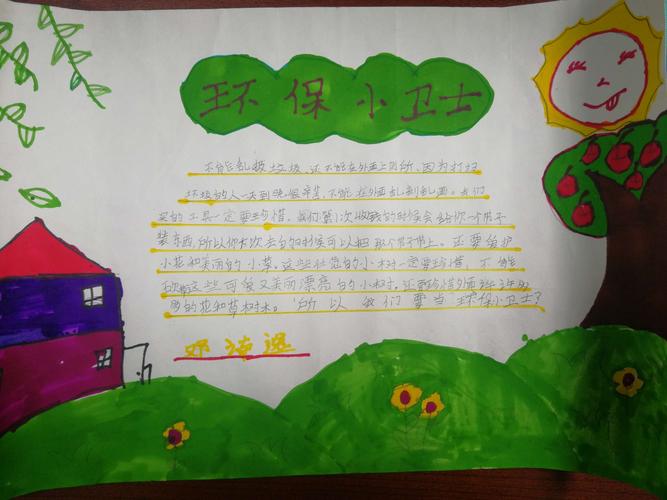 环保小卫士
不能乱扔垃圾,还不能在外面上厕所,因为打扫
垃圾的人一天到晚很辛苦,不能在外面乱刻乱画。我们
买的工具一定要珍惜。我们第次收的时候会给你一个吊子
装东西,所以你在次去的时候可以把那个吊子带上。还要爱护
小花和美丽的小草。这些壮的小树一定要珍惜,不能
砍这些可爱又美丽漂亮的小树。还要珍惜外面
的花和草树木。所以我们要当环保小卫士?
邓